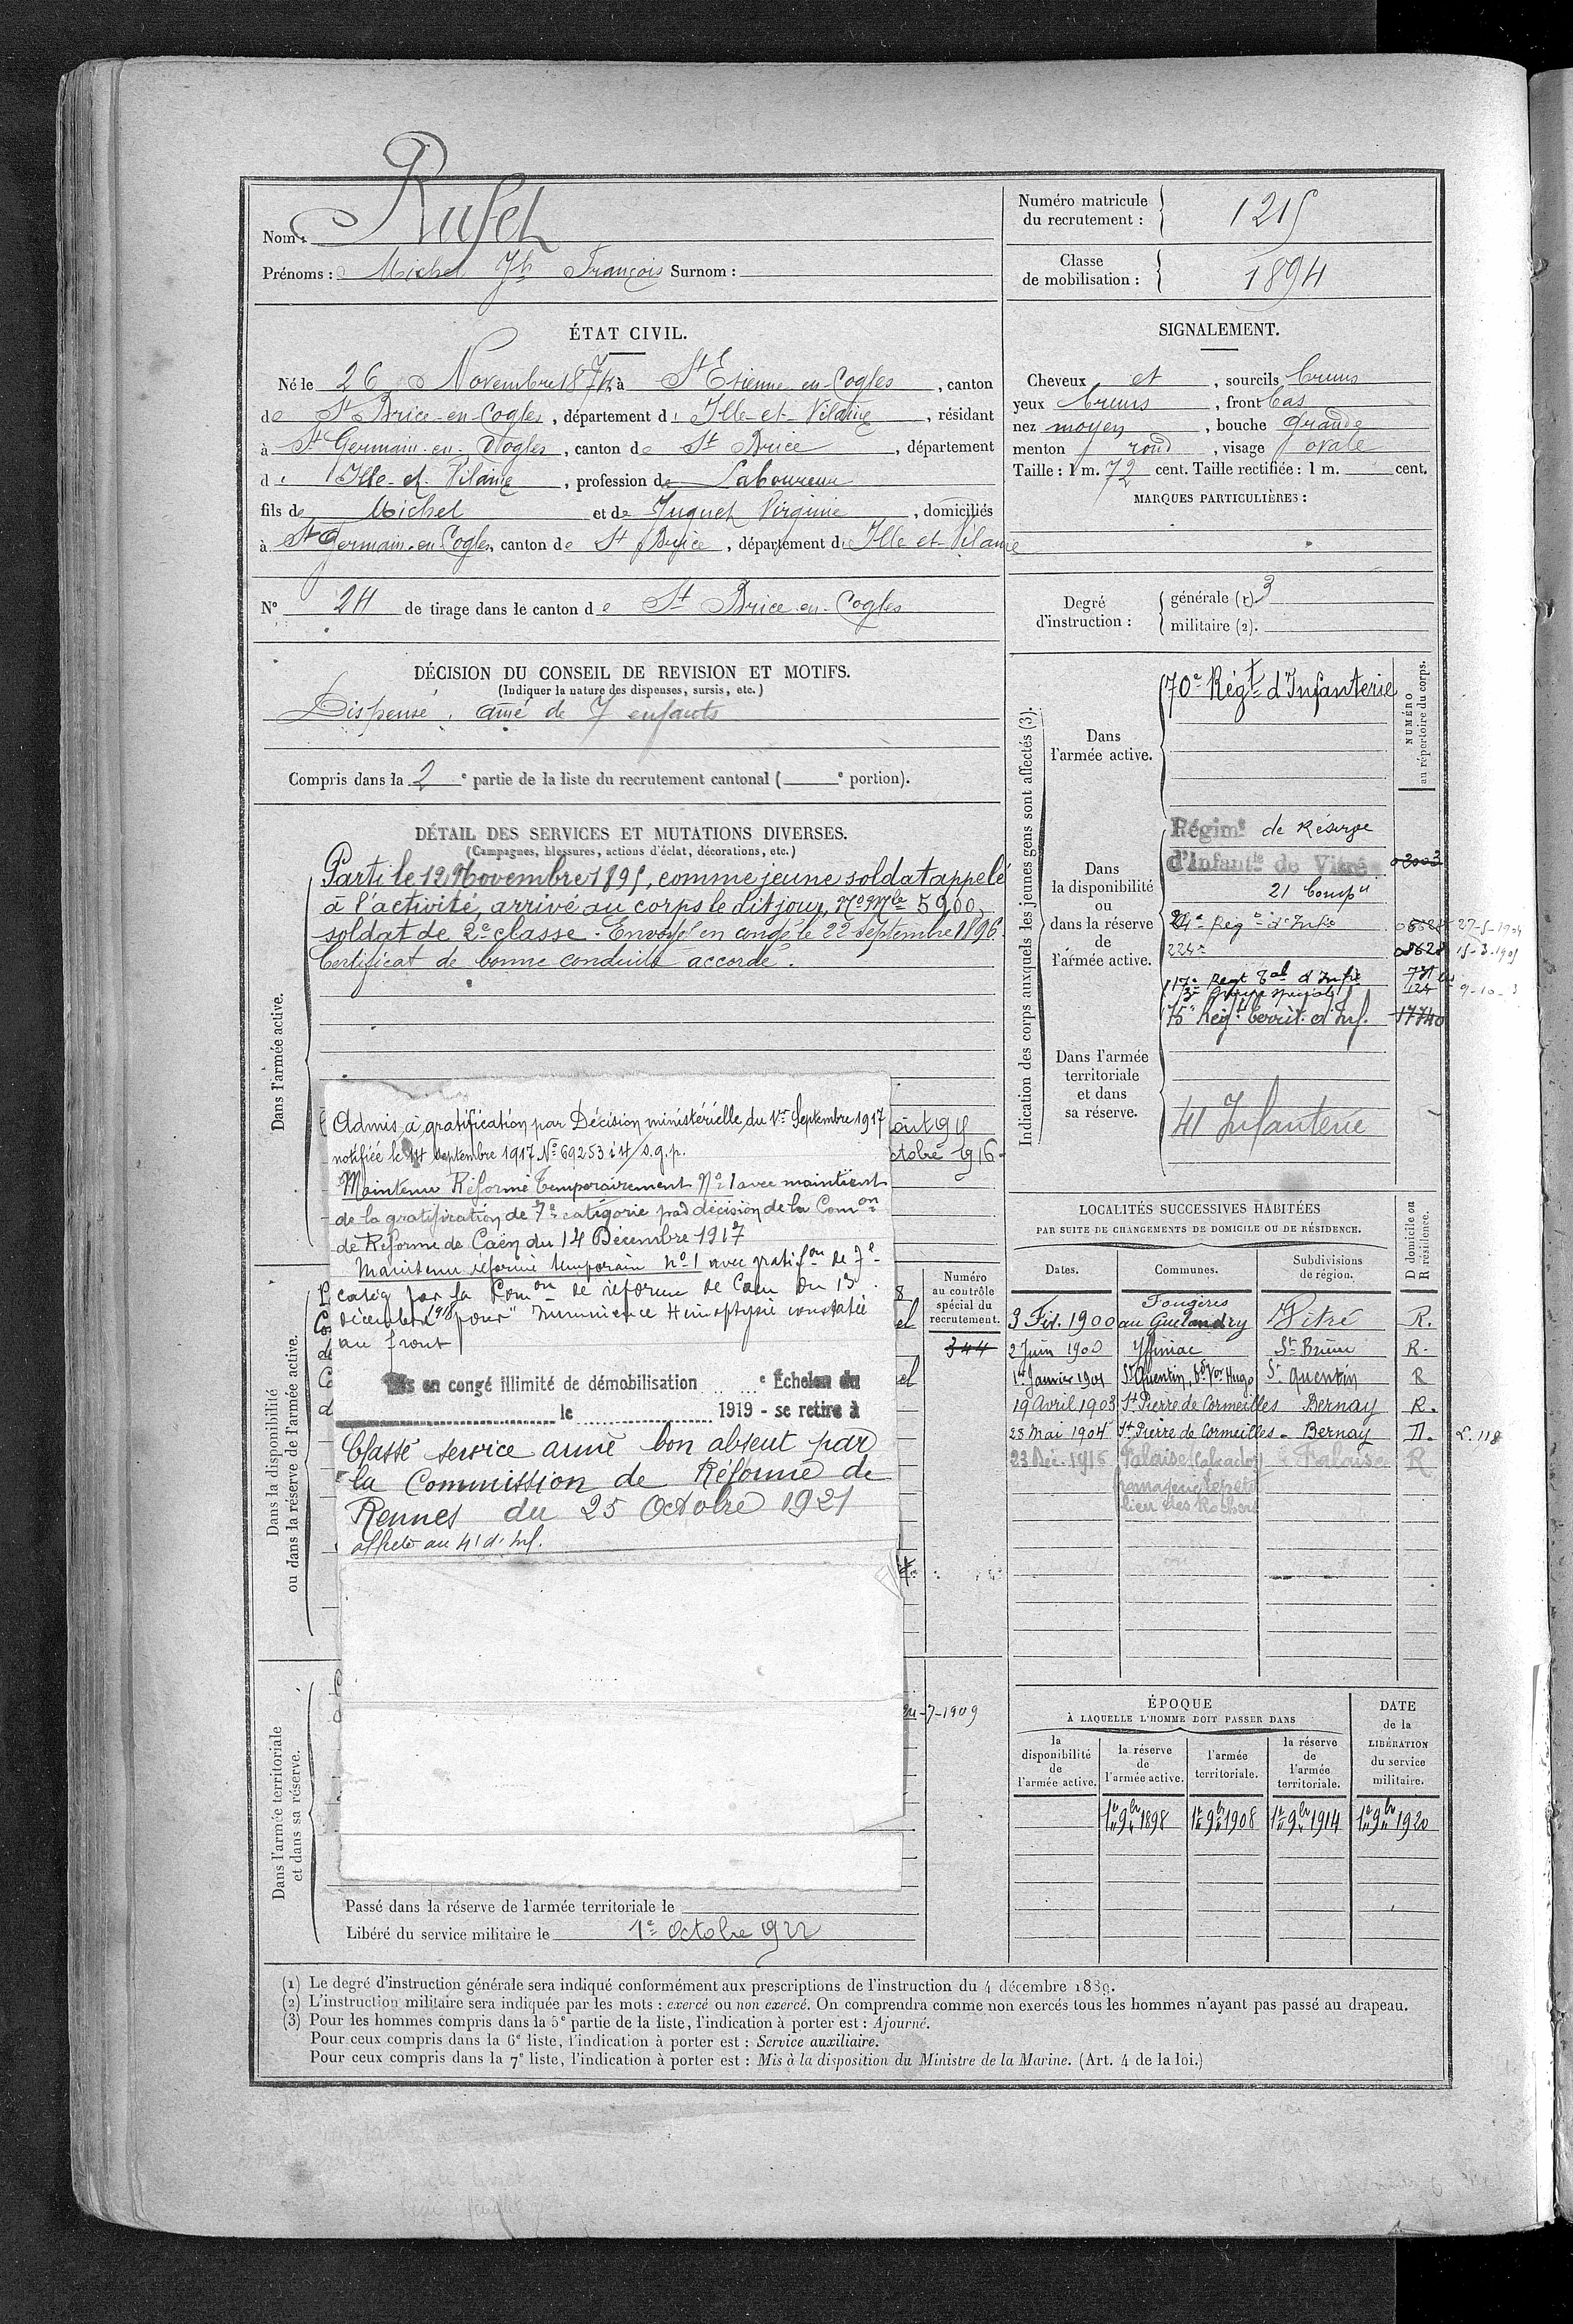 Nom : Rufel
Prénoms : Michel Jh François Surnom :
Numéro matricule du recrutement : 1215
Classe de mobilisation : 1894
ÉTAT CIVIL.
Né le 26 Novembre 1874 à St Etienne-en-Cogles, canton
de St Brice-en-Cogles, département d' Ille-et-Vilaine, résidant
à St Germain-en-Cogles, canton de St Brice, département
d' Ille-et-Vilaine, profession de Laboureur
fils de Michel et de Juguet Virginie, domiciliés
à St Germain-en-Cogles, canton de St Brice, département d' Ille-et-Vilaine
N° 24 de tirage dans le canton de St Brice-en-Cogles
SIGNALEMENT.
Cheveux et, sourcils bruns
yeux bruns, front bas
nez moyen, bouche grande
menton rond, visage ovale
Taille : 1 m. 72 cent. Taille rectifiée : 1 m. cent.
MARQUES PARTICULIÈRES :
Degré d'instruction :
générale (1) 3
militaire (2).
DÉCISION DU CONSEIL DE REVISION ET MOTIFS.
(Indiquer la nature des dispenses, sursis, etc.)
Dispensé. aîné de 7 enfants
Compris dans la 2e partie de la liste du recrutement cantonal ( e portion).
DÉTAIL DES SERVICES ET MUTATIONS DIVERSES.
(Campagnes, blessures, actions d'éclat, décorations, etc.)
Dans l'armée active.
Parti le 12 Novembre 1895, comme jeune soldat appelé
à l'activité, arrivé au corps le dit jour, No Mle 5900,
soldat de 2e classe. Envoyé en congé le 22 septembre 1896.
Certificat de bonne conduite accordé.
Admis à gratification par Décision ministérielle du 1er Septembre 1917
notifiée le 14 septembre 1917 No 69253 i 4/s.g.p.
Maintenu Réformé Temporairement No 1 avec maintient
de la gratification de 7e catégorie par décision de la Comon
de Réforme de Caen du 14 Décembre 1917
Maintenu réformé temporaire no 1 avec gratifon de 7e
catég par la Comon de réforme de Caen du 13
décembre 1918 pour "Imminence Hémoptysie constatée
au front
Mis en congé illimité de démobilisation e Échelon du
le 1919 - se retire à
Classé service armé bon absent par
la Commission de Réforme de
Rennes du 25 Octobre 1921
affecté au 41 d'Inf.
oût 1915
ctobre 1916
Dans la disponibilité ou dans la réserve de l'armée active.
Numéro au contrôle spécial du recrutement.
344
Dans l'armée territoriale et dans sa réserve.
-7-1909
Passé dans la réserve de l'armée territoriale le
Libéré du service militaire le 1er Octobre 1922
Indication des corps auxquels les jeunes gens sont affectés (3).
NUMÉRO au répertoire du corps.
Dans l'armée active.
70e Régt d'Infanterie
Dans la disponibilité ou dans la réserve de l'armée active.
Régimt de Réserve
d'Infantie de Vitré 02003
21 Compie
24e Régt d'Infie 27-5-1904
224e 08628 15-3-1905
17e Regt Tal d'Infie
3e Groupe spécial 124
75e Régt territ. d'Inf. 17740
Dans l'armée territoriale et dans sa réserve.
41 Infanterie
LOCALITÉS SUCCESSIVES HABITÉES
PAR SUITE DE CHANGEMENTS DE DOMICILE OU DE RÉSIDENCE.
Dates. Communes. Subdivisions de région. D domicile ou R résidence.
3 Fév. 1900 Fougères au Guélandry Vitré R.
2 Juin 1900 Yffiniac St Brieuc R.
1er Janvier 1901 St Quentin, Bd Vor Hugo St Quentin R
19 Avril 1903 St Pierre de Cormeilles Bernay R.
28 Mai 1904 St Pierre de Cormeilles Bernay D. L. 118
23 Déc. 1916 Falaise (Calvados) Falaise R
fromagerie
lieu des Rochers
ÉPOQUE
À LAQUELLE L'HOMME DOIT PASSER DANS
la disponibilité de l'armée active. la réserve de l'armée active. l'armée territoriale. la réserve de l'armée territoriale.
DATE de la LIBÉRATION du service militaire.
1er 9bre 1898 1er 9bre 1908 1er 9bre 1914 1er 9bre 1920
(1) Le degré d'instruction générale sera indiqué conformément aux prescriptions de l'instruction du 4 décembre 1889.
(2) L'instruction militaire sera indiquée par les mots : exercé ou non exercé. On comprendra comme non exercés tous les hommes n'ayant pas passé au drapeau.
(3) Pour les hommes compris dans la 5e partie de la liste, l'indication à porter est : Ajourné.
Pour ceux compris dans la 6e liste, l'indication à porter est : Service auxiliaire.
Pour ceux compris dans la 7e liste, l'indication à porter est : Mis à la disposition du Ministre de la Marine. (Art. 4 de la loi.)